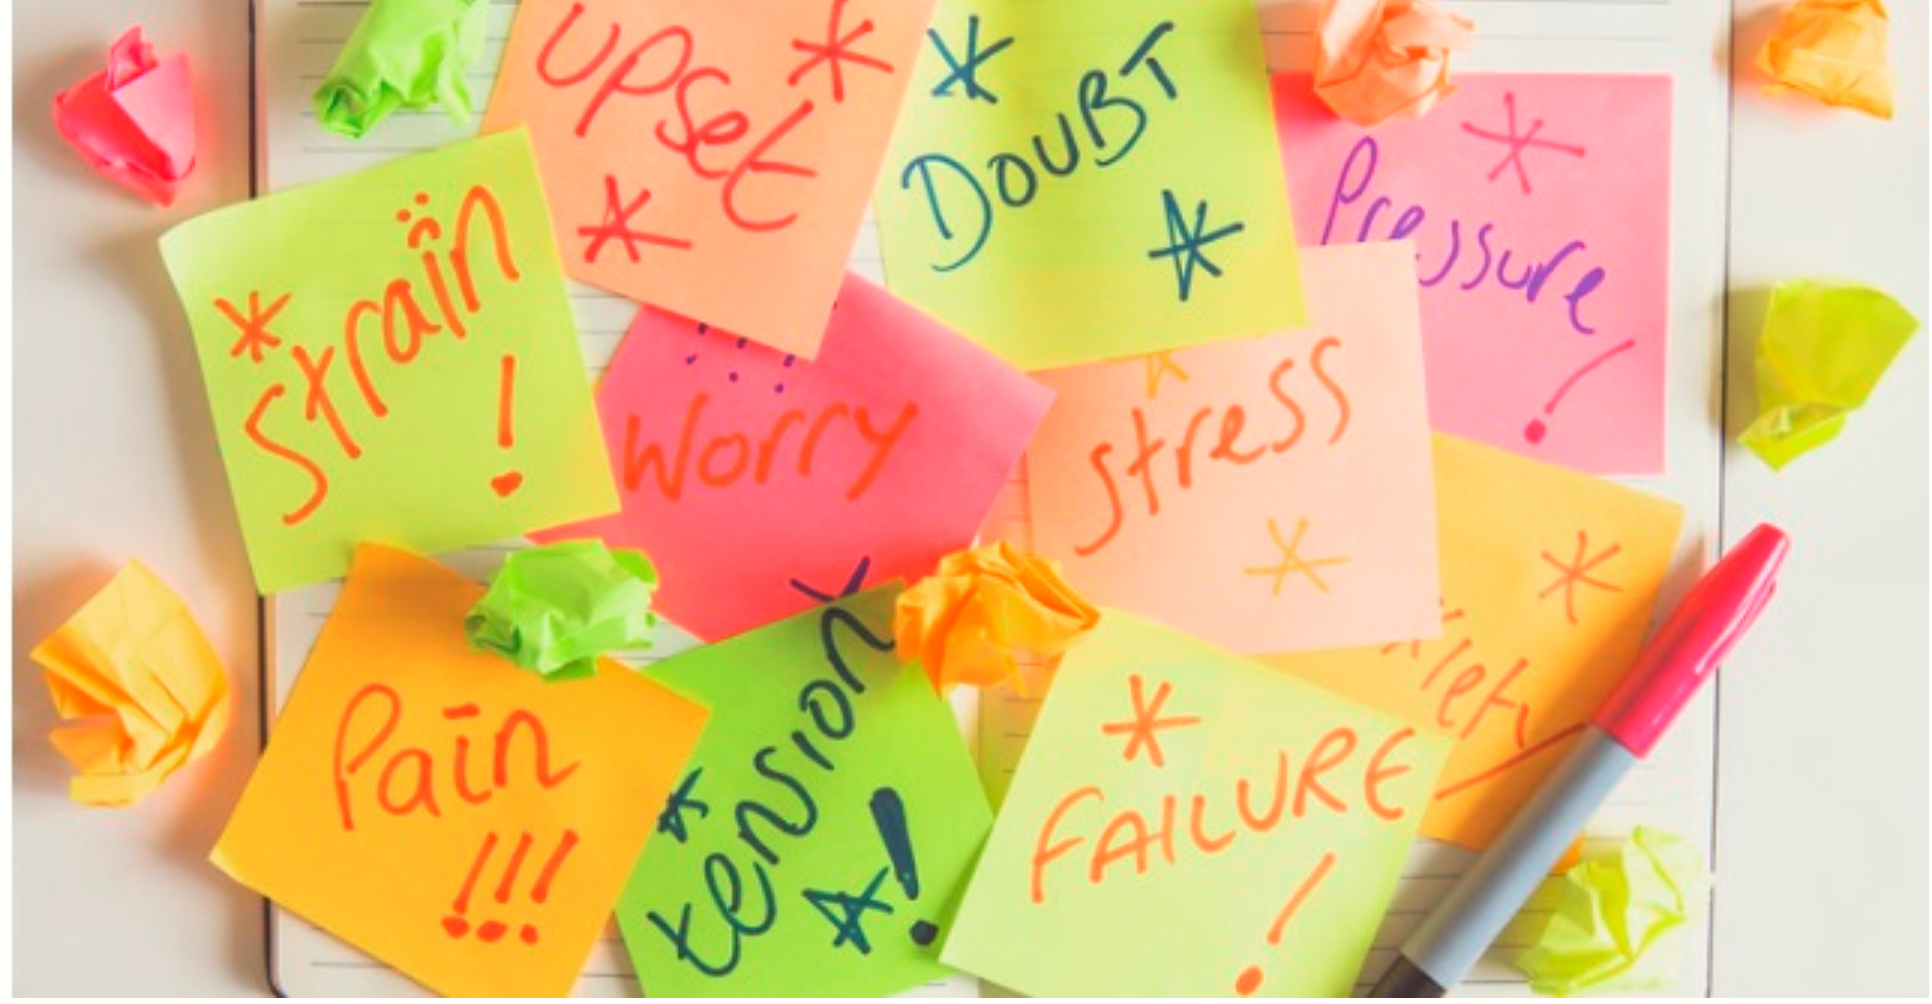 upset
DOUBT
Pressure
!
Strain
!
Worry
stress
Pain
!!!
tension
!
FAILURE
!